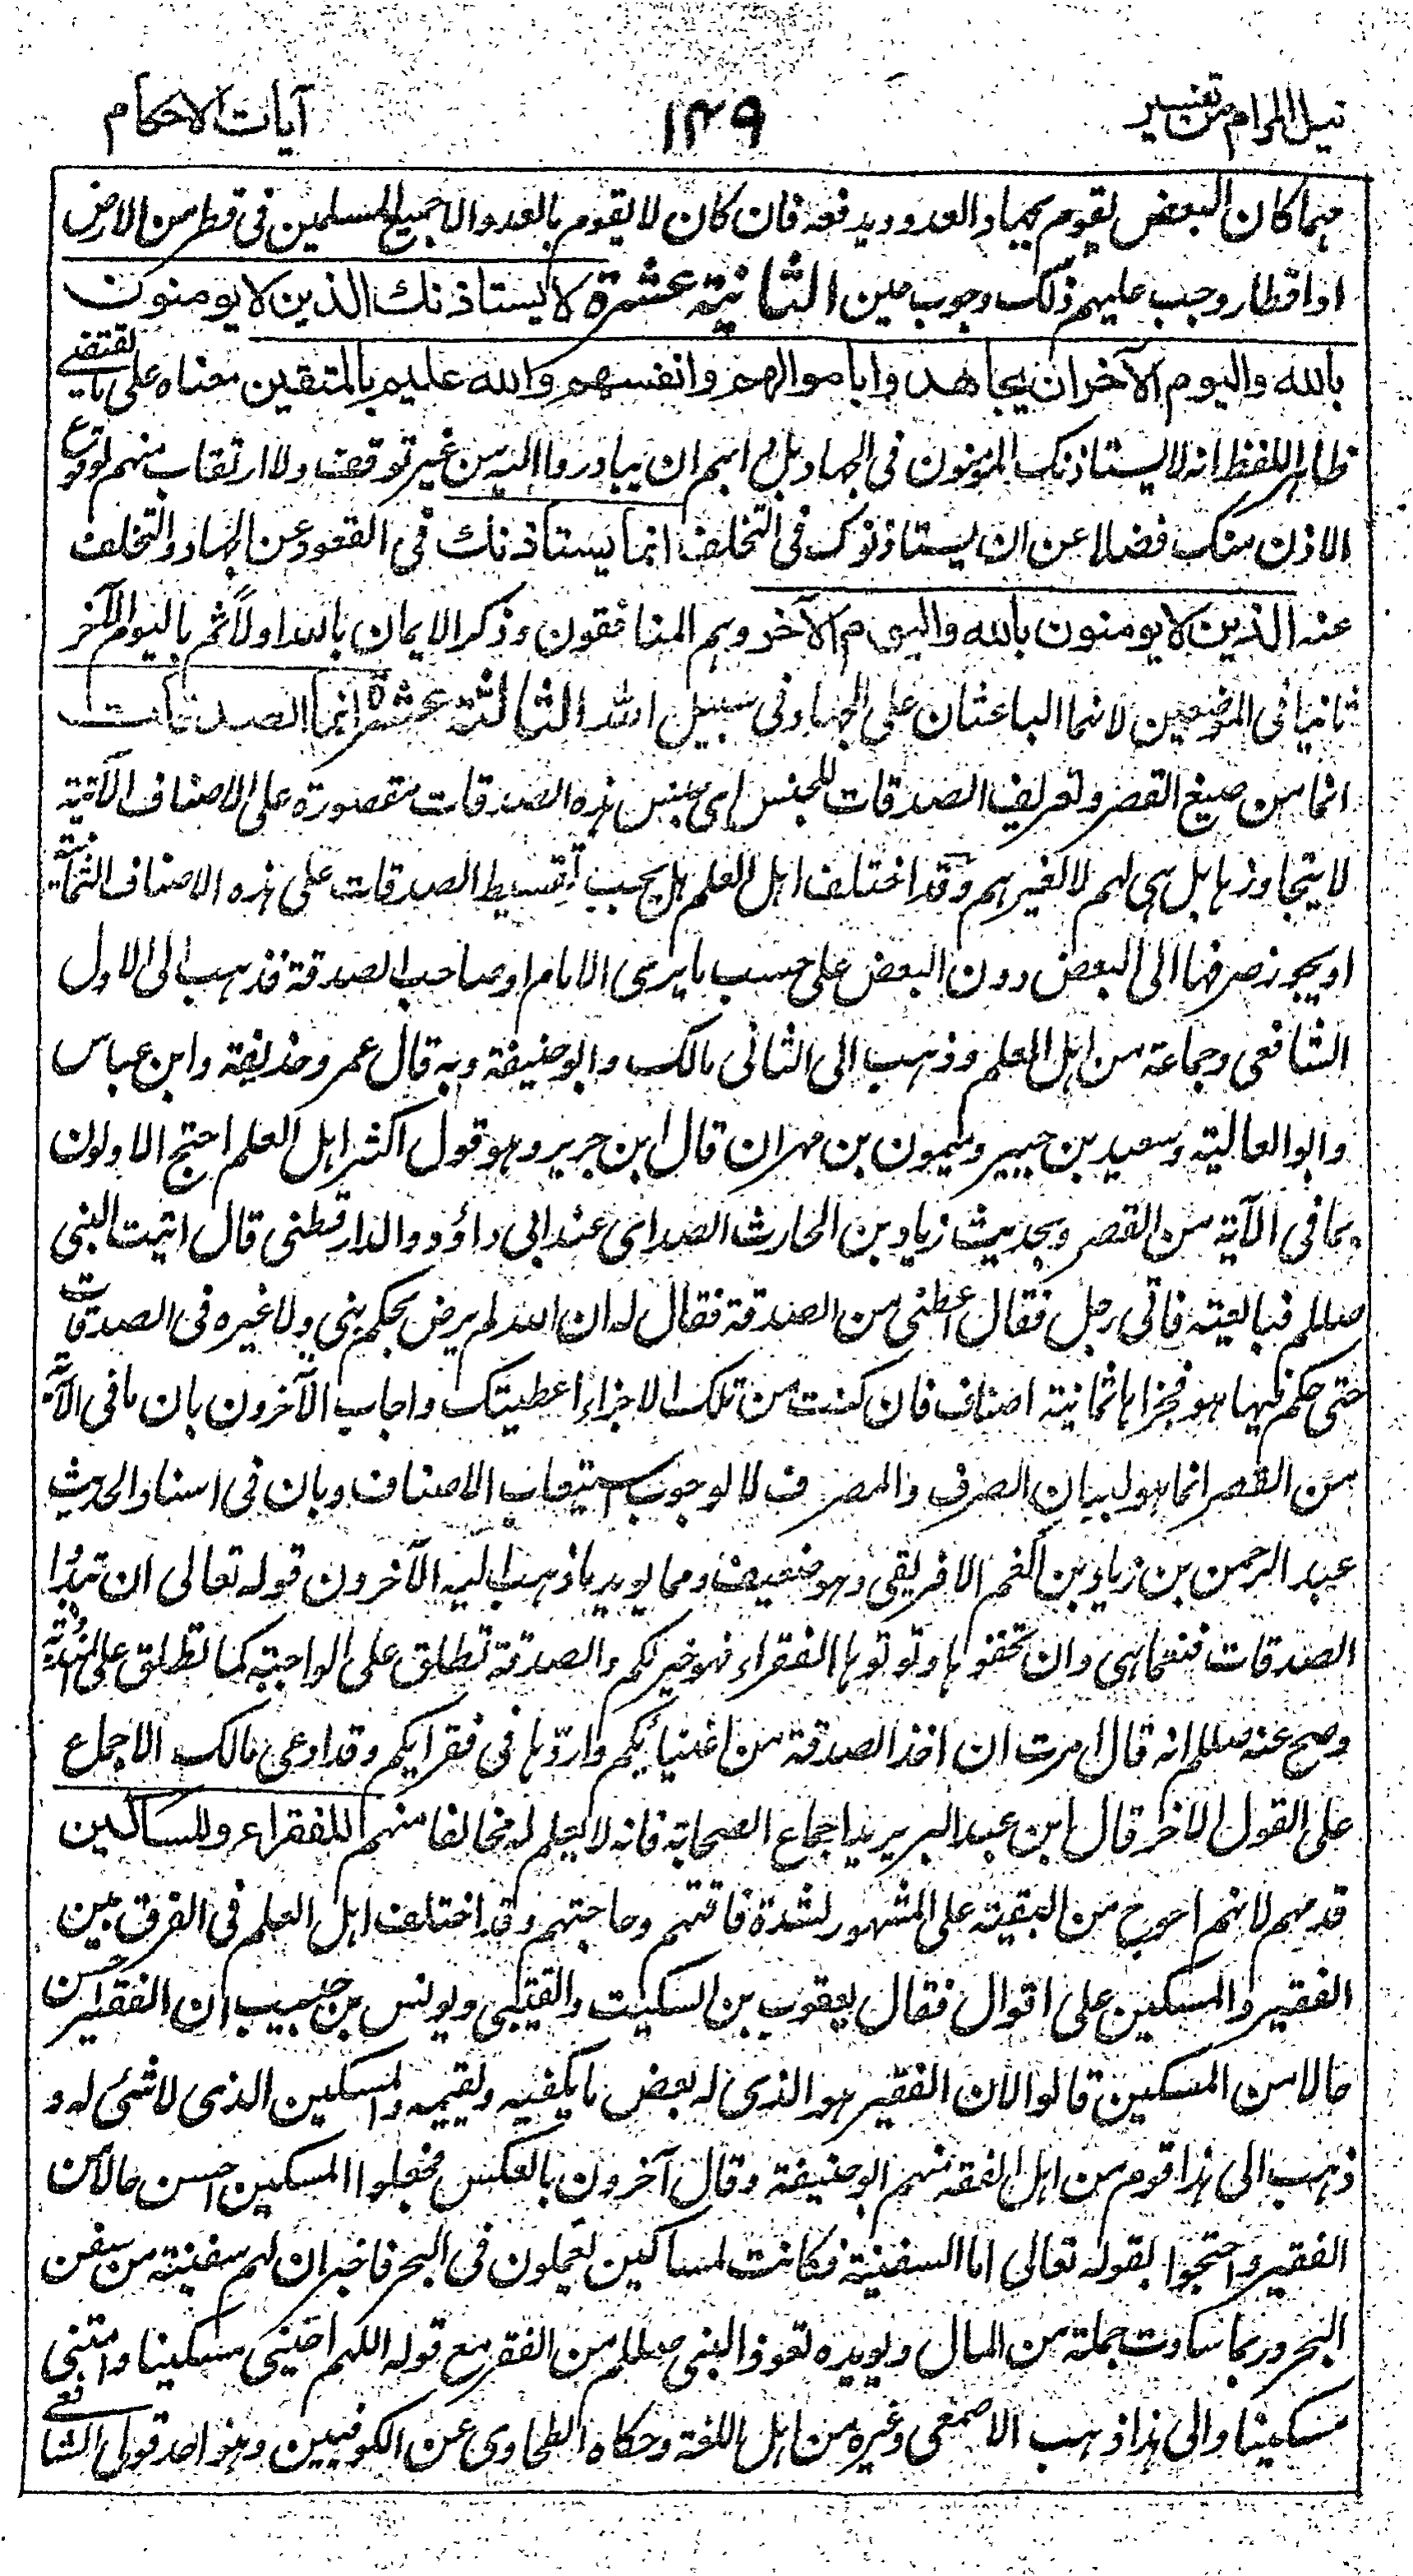 نيل المرام من تفسير ١٤٩ آيات الاحكام
مهما كان البعض يقوم بجهاد العدو ويدفعه فان كان لا يقوم بالعدو الا جميع المسلمين فى قطر من الارض
او اقطار وجب عليهم ذلك وجوب عين الثانية عشرة لا يستاذنك الذين لا يومنون
بالله واليوم الآخر ان يجاهدوا باموالهم وانفسهم والله عليم بالمتقين معناه على ما يقتضيه
ظاهر اللفظ انه لا يستاذنك المومنون فى الجهاد بل دابهم ان يبادروا اليه من غير توقف ولا ارتقاب منهم لوقوع
الاذن منك فضلا عن ان يستاذنوك فى التخلف انما يستاذنك فى القعود عن الجهاد والتخلف
عنه الذين لا يومنون بالله واليوم الآخر وهم المنافقون وذكر الايمان بالله اولاً ثم باليوم الآخر
ثانيا فى الموضعين لانهما الباعثان على الجهاد فى سبيل الله الثالثة عشرة انما الصدقات
انما من صيغ القصر وتعريف الصدقات للجنس اى جنس هذه الصدقات مقصورة على الاصناف الآتية
لا يتجاوزها بل هى لهم لا لغيرهم وقد اختلف اهل العلم هل يجب تقسيط الصدقات على هذه الاصناف الثمانية
او يجوز صرفها الى البعض دون البعض على حسب ما يرى الامام او صاحب الصدقة فذهب الى الاول
الشافعى وجماعة من اهل العلم وذهب الى الثانى مالك وابو حنيفة وبه قال عمر وحذيفة وابن عباس
وابو العالية وسعيد بن جبير وميمون بن مهران قال ابن جرير وهو قول اكثر اهل العلم احتج الاولون
بما فى الآية من القصر وبحديث زياد بن الحارث الصداى عند ابى داؤد والدارقطنى قال اتيت النبى
صللم فبايعته فاتى رجل فقال اعطنى من الصدقة فقال له ان الله لم يرض بحكم نبى ولا غيره فى الصدقات
حتى حكم فيها هو فجزاها ثمانية اصناف فان كنت من تلك الاجزاء اعطيتك واجاب الآخرون بان ما فى الآية
من القصر انما هو لبيان الصرف والمصرف لا لوجوب استيعاب الاصناف وبان فى اسناد الحديث
عبد الرحمن بن زياد بن انعم الافريقى وهو ضعيف ومما يويد ما ذهب اليه الآخرون قوله تعالى ان تبدوا
الصدقات فنعما هى وان تخفوها وتوتوها الفقراء فهو خير لكم والصدقة تطلق على الواجبة كما تطلق على المندوبة
وصح عنه صللم انه قال امرت ان اخذ الصدقة من اغنيائكم واردّها فى فقرائكم وقد ادعى مالك الاجماع
على القول الآخر قال ابن عبد البر يريد اجماع الصحابة فانه لا يعلم له مخالفا منهم للفقراء والمساكين
قدمهم لانهم احوج من البقية على المشهور لشدة فاقتهم وحاجتهم وقد اختلف اهل العلم فى الفرق بين
الفقير والمسكين على اقوال فقال يعقوب بن السكيت والقتيبى ويونس بن حبيب ان الفقير احسن
حالا من المسكين قالوا لان الفقير هو الذى له بعض ما يكفيه ويقيمه والمسكين الذى لا شئ له و
ذهب الى هذا قوم من اهل الفقه منهم ابو حنيفة وقال آخرون بالعكس فجعلوا المسكين احسن حالا من
الفقير واحتجوا بقوله تعالى اما السفينة فكانت لمساكين يعملون فى البحر فاخبر ان لهم سفينة من سفن
البحر وربما ساوت جملة من المال ويويده تعوذ النبى صللم من الفقر مع قوله اللهم احينى مسكينا وامتنى
مسكينا والى هذا ذهب الاصمعى وغيره من اهل اللغة وحكاه الطحاوى عن الكوفيين وهو احد قولى الشافعى